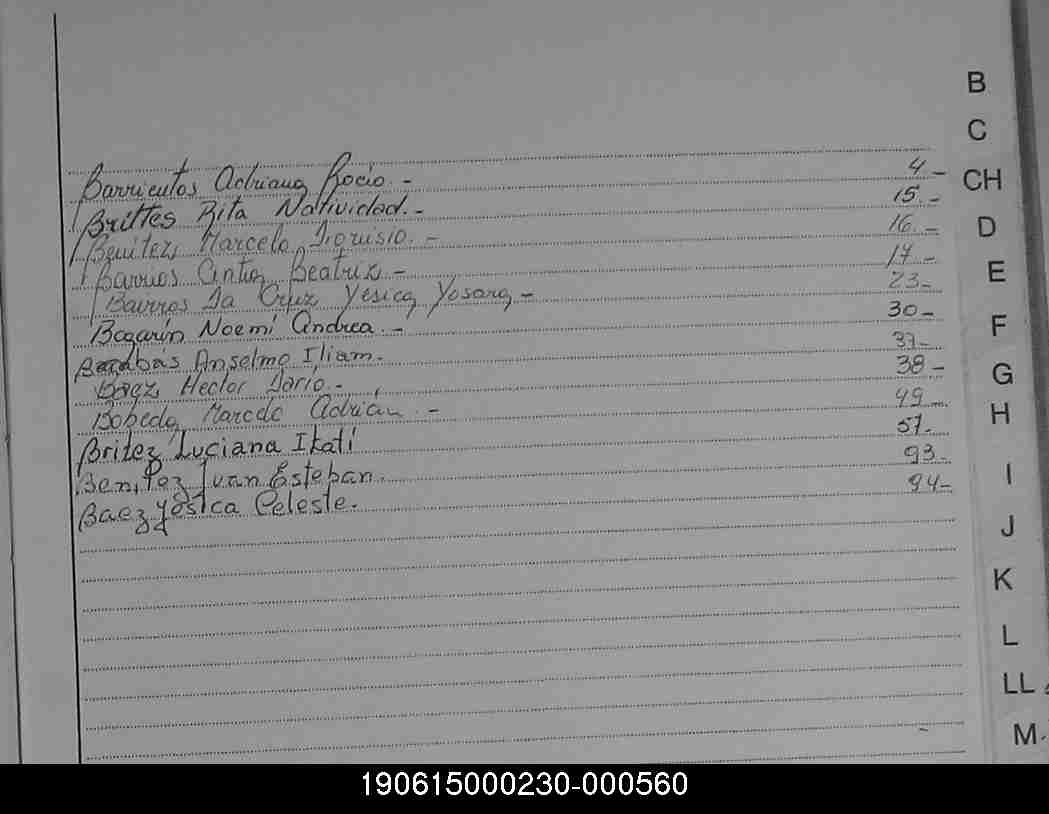 Barrientos Adriana Rocio.- 4.-
Brittes Rita Natividad.- 15.-
Benitez Marcelo Dionisio.- 16.-
Barrios Cintia Beatriz.- 17.-
Barros Da Cruz Yesica Yosara.- 23.-
Bogarin Noemí Andrea.- 30.-
Barabás Anselmo Iliam.- 37.-
Baez Hector Dario.- 38.-
Bobeda Marcelo Adrián.- 49.-
Britez Luciana Itatí 57.-
Benitez Ivan Esteban. 93.-
Baez Yésica Celeste. 94.-
B
C
CH
D
E
F
G
H
I
J
K
L
LL
M
190615000230-000560